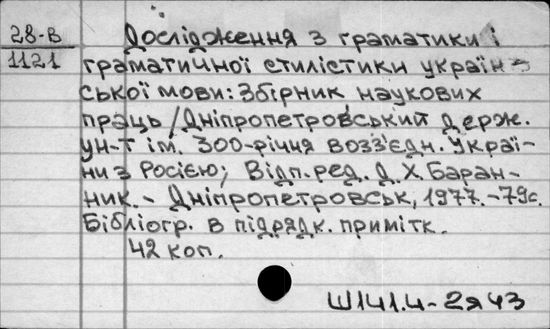 28-В
1121
Дослідження з граматики і
граматичної стилістики україн-
ської мови: Збірник наукових
праць / Дніпропетровський держ.
ун-т ім. 300-річчя возз'єдн. Украї-
ни з Росією; Відп. ред. Д. Х. Баран-
ник. - Дніпропетровськ, 1977. - 79с.
Бібліогр. в підрядк. примітк.
42 коп.
Ш141.4-2я43